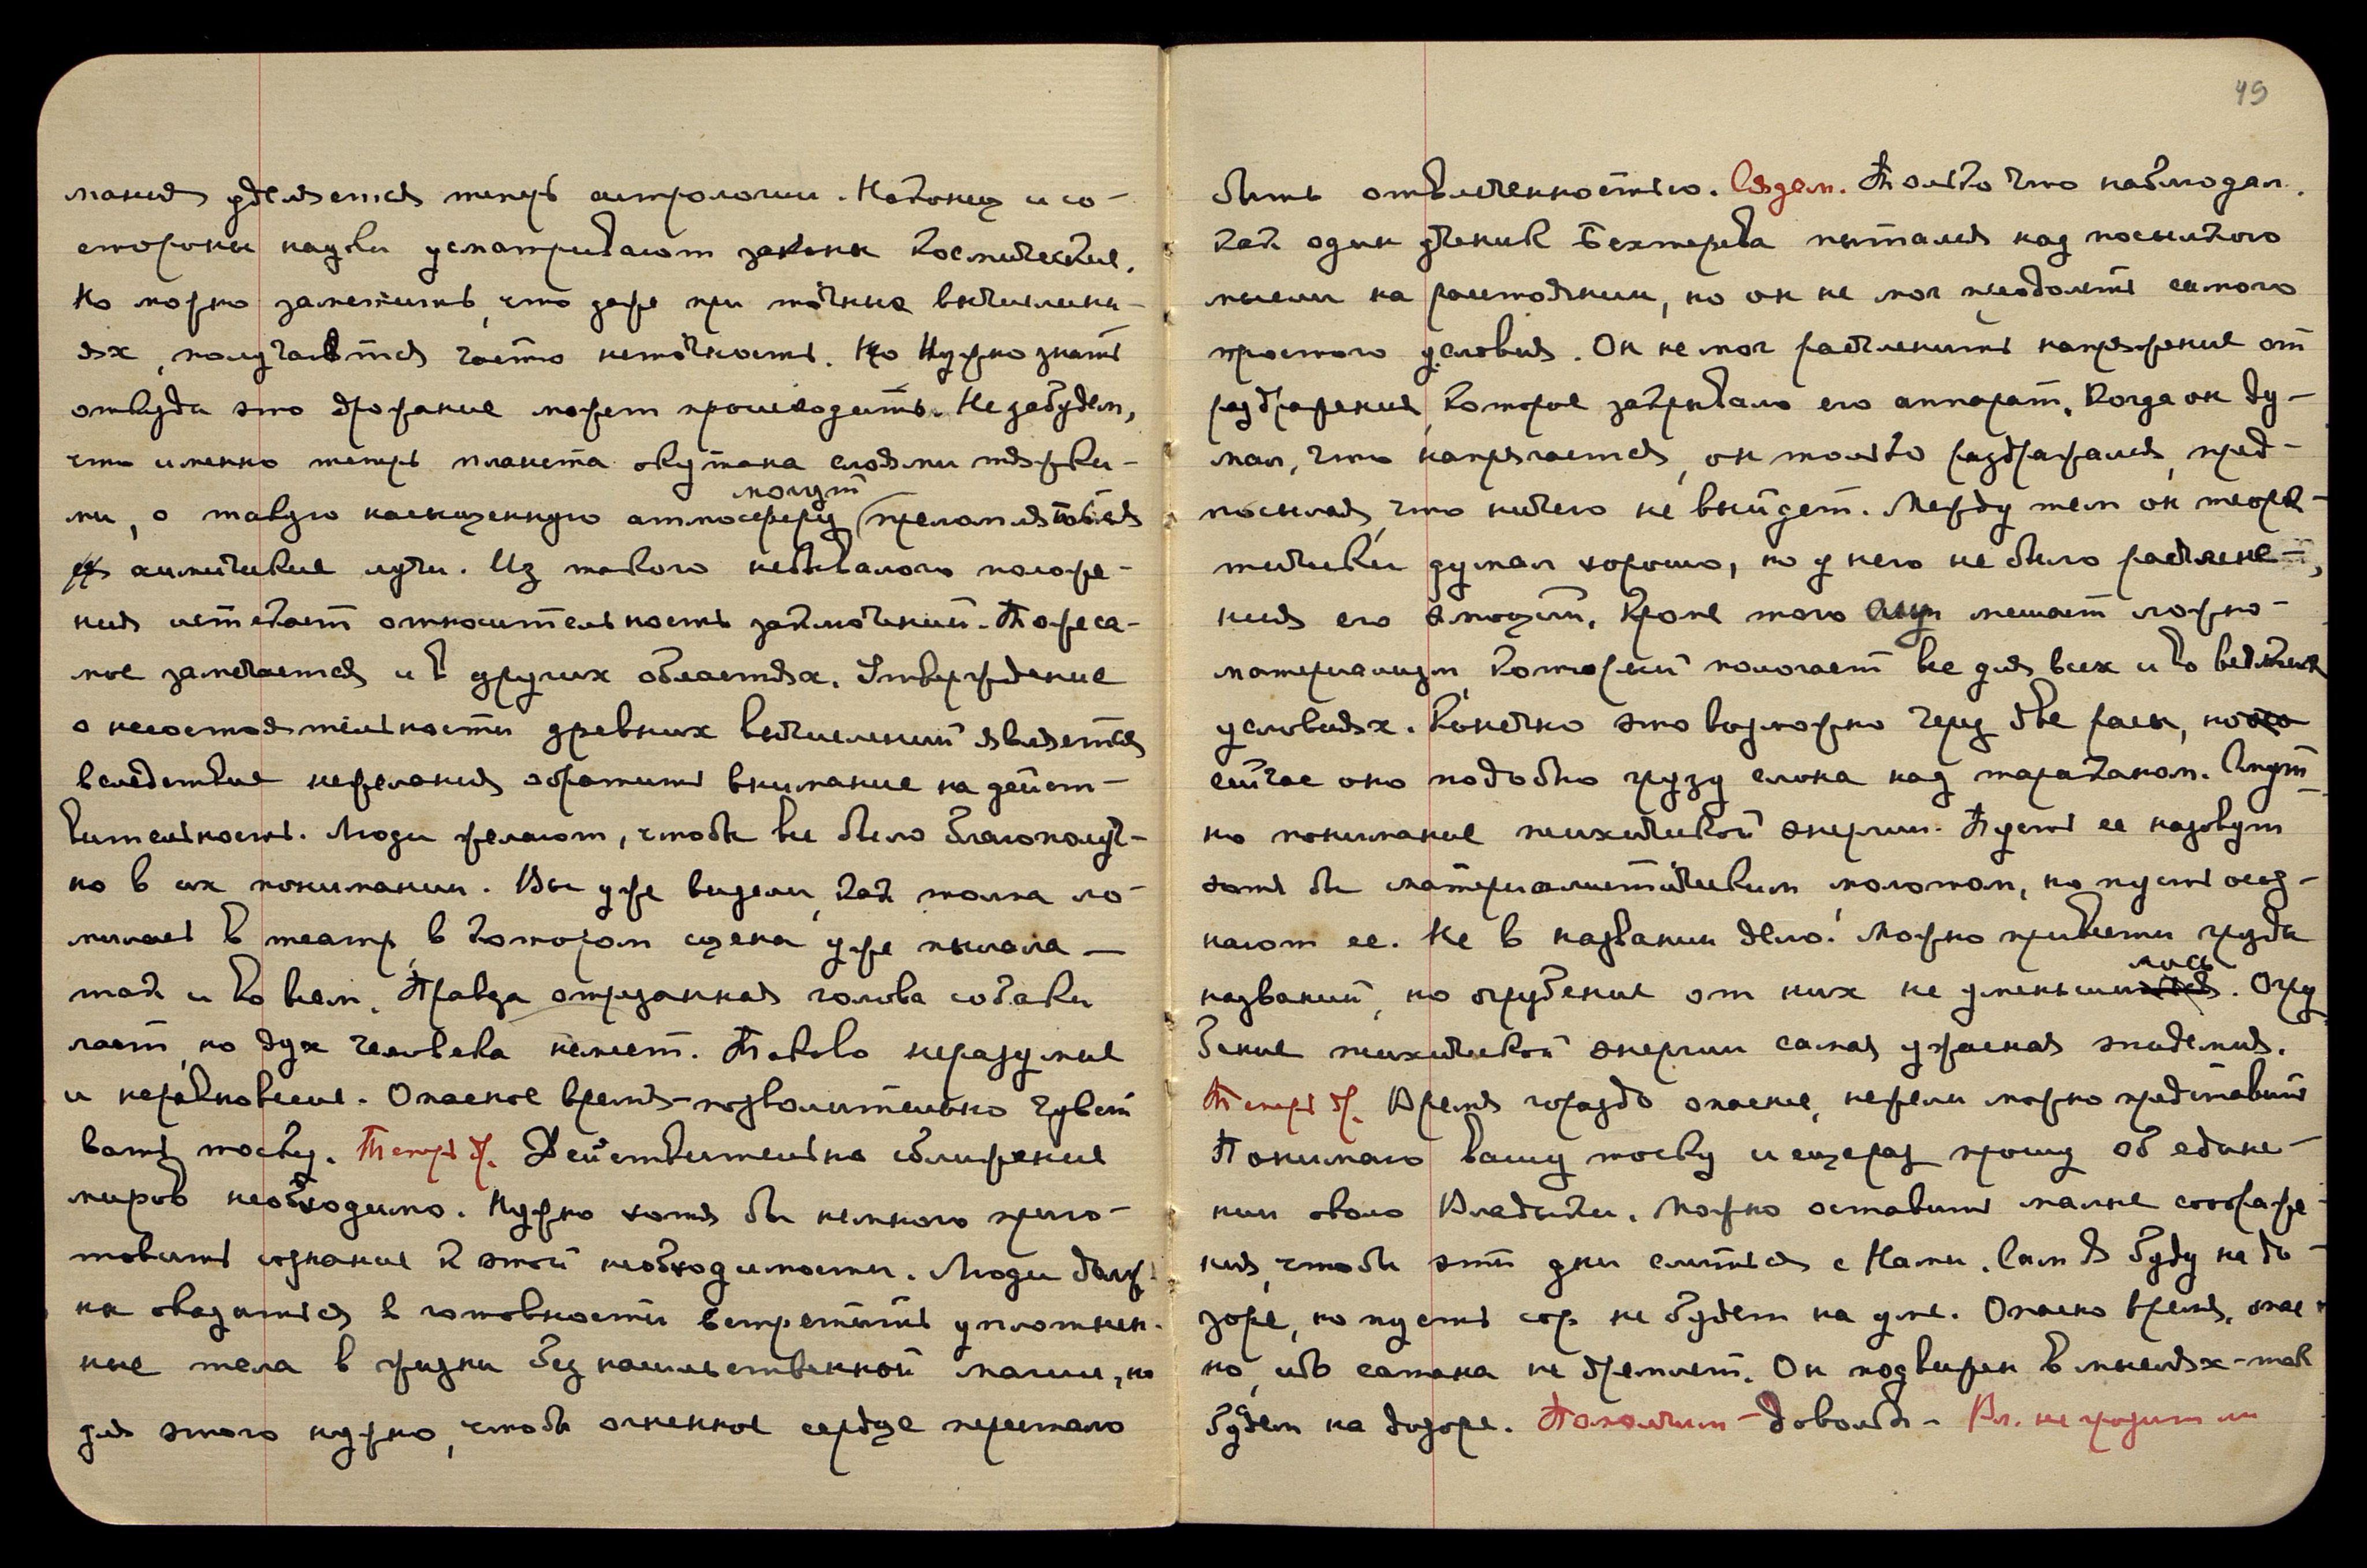 мания уделяется теперь астрологии. Наконец и со-
стороны науки усматривают законы космические.
Но можно заметить, что даже при точных вычислени-
ях, получается часто неточность. Но Нужно знать
откуда это дрожание может происходить. Не забудем,
что именно теперь планета окутана слоями тяжки-
ми, о такую насыщенную атмосферу могут преломляться
химические лучи. Из такого небывалого положе-
ния истекает относительность заключений. То же са-
мое замечается и в других областях. Утверждение
о несостоятельности древних вычислений является
вследствие нежелания обратить внимание на дейст-
вительность. Люди желают, чтобы все было благополуч-
но в их понимании. Вы уже видели, как толпа ло-
милась в театр, в котором сцена уже пылала —
так и во всем. Правда отрезанная голова собаки
лает, но дух человека немеет. Таково неразумие
и неравновесие. Опасное время – позволительно чувст
вать тоску. Теперь др. Действительно сближение
миров необходимо. Нужно хотя бы немного приго-
товить сознание к этой необходимости. Люди долж-
ны оказаться в готовности встретить уплотнен-
ные тела в жизни без насильственной магии, но
для этого нужно, чтобы огненное сердце перестало
49
быть отвлеченностью. Сядем. Только что наблюдал.
как один ученик Бехтерева пытался над посылкою
мысли на расстоянии, но он не мог преодолеть самого
простого условия. Он не мог расчленить напряжение от
раздражения, которое закрывало его аппарат. Когда он ду-
мал, что напрягается, он только раздражался, пред-
посылая, что ничего не выйдет. Между тем он теоре-
тически думал хорошо, но у него не было расчлене-
ния его эмоций. Кроме того мешает ложно-
материализм, который полагает все для всех и во всяких
условиях. Конечно это возможно через две расы, но
сейчас оно подобно грузу слона над тараканом. Смут-
но понимание психической энергии. Пусть ее назовут
хотя бы материалистическим молотом, но пусть осоз-
нают ее. Не в названии дело! Можно привести груды
названий, но огрубение от них не уменьшилось. Огру
бение психической энергии самая ужасная эпидемия.
Теперь др. Время гораздо опаснее, нежели можно представить
Понимаю вашу тоску и еще раз прошу об едине-
нии около Владыки. Можно оставить малые соображе-
ния, чтобы эти дни слиться с Нами. Сам Я буду на до-
зоре, но пусть сор не будет на уме. Опасно время, опас
но, ибо сатана не дремлет. Он подвижен в мыслях – так
будем на дозоре. Помолчим – Довольно – Вл. не грозит ли